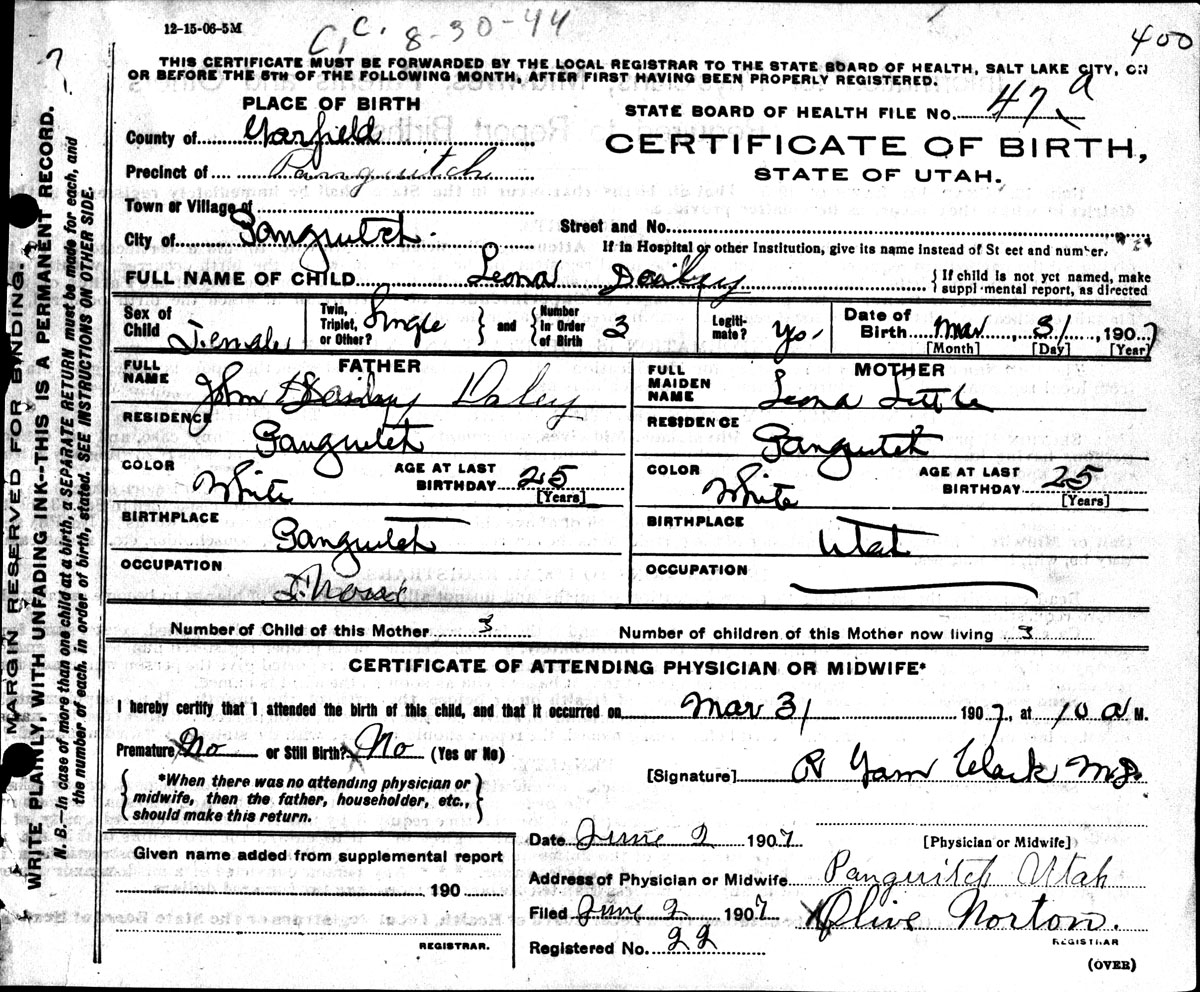 12-15-06-5M
C.C. 8-30-44
400
THIS CERTIFICATE MUST BE FORWARDED BY THE LOCAL REGISTRAR TO THE STATE BOARD OF HEALTH, SALT LAKE CITY, ON
OR BEFORE THE 5TH OF THE FOLLOWING MONTH, AFTER FIRST HAVING BEEN PROPERLY REGISTERED.
PLACE OF BIRTH
County of Garfield
Precinct of Panguitch
Town or Village of
City of Panguitch.
STATE BOARD OF HEALTH FILE No. 47 a
CERTIFICATE OF BIRTH,
STATE OF UTAH.
Street and No.
If in Hospital or other Institution, give its name instead of St eet and number.
FULL NAME OF CHILD Leona Dailey
{ If child is not yet named, make
suppl mental report, as directed
Sex of Child Female
Twin, Triplet, or Other? Single } and { Number in Order of Birth 3
Legiti-mate? yes
Date of Birth Mar 31, 1907
[Month] [Day] [Year]
FATHER
FULL NAME John Dailey Daley
RESIDENCE Panguitch
COLOR White AGE AT LAST BIRTHDAY 25 [Years]
BIRTHPLACE Panguitch
OCCUPATION
MOTHER
FULL MAIDEN NAME Leona Little
RESIDENCE Panguitch
COLOR White AGE AT LAST BIRTHDAY 25 [Years]
BIRTHPLACE Utah
OCCUPATION
Number of Child of this Mother 3 Number of children of this Mother now living 3
CERTIFICATE OF ATTENDING PHYSICIAN OR MIDWIFE*
I hereby certify that I attended the birth of this child, and that it occurred on Mar 31 1907, at 10 a M.
Premature? No or Still Birth? No (Yes or No)
{ *When there was no attending physician or
midwife, then the father, householder, etc.,
should make this return. }
[Signature] R Garn Clark M.D.
[Physician or Midwife]
Given name added from supplemental report
190
REGISTRAR.
Date June 2 1907
Address of Physician or Midwife Panguitch Utah
Filed June 2 1907 Olive Norton.
REGISTRAR
Registered No. 22
(OVER)
MARGIN RESERVED FOR BINDING.
WRITE PLAINLY, WITH UNFADING INK—THIS IS A PERMANENT RECORD.
N. B.—In case of more than one child at a birth, a SEPARATE RETURN must be made for each, and
the number of each, in order of birth, stated. SEE INSTRUCTIONS ON OTHER SIDE.